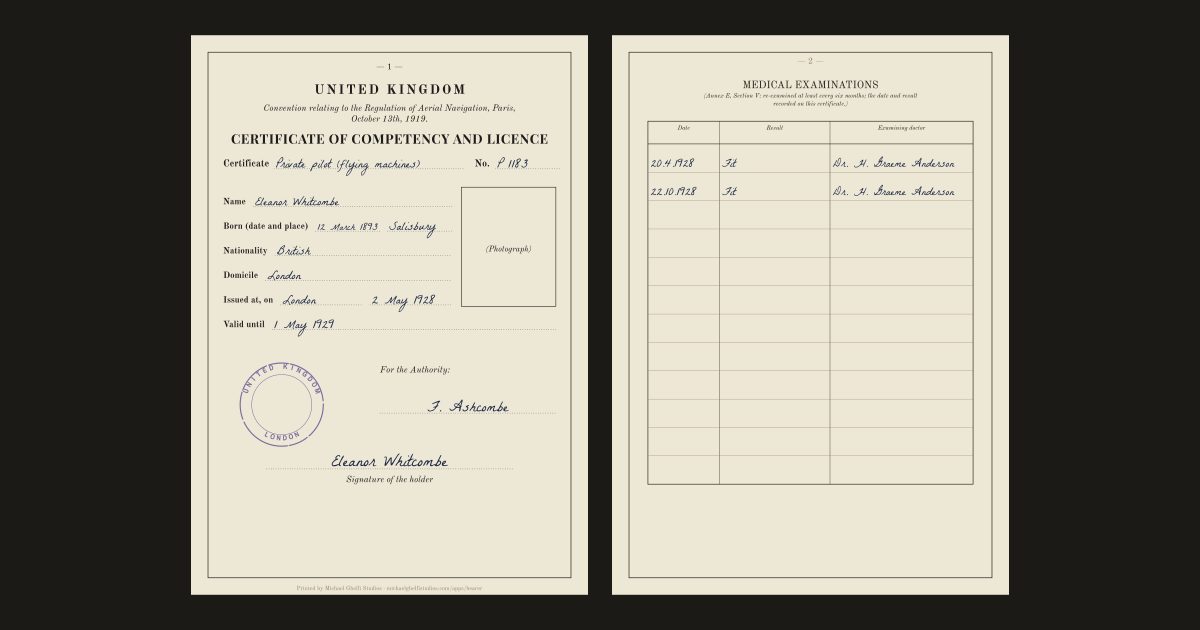 — 1 —
UNITED KINGDOM
Convention relating to the Regulation of Aerial Navigation, Paris,
October 13th, 1919.
CERTIFICATE OF COMPETENCY AND LICENCE
Certificate Private pilot (flying machines) No. P 1183
Name Eleanor Whitcombe
Born (date and place) 12 March 1893 Salisbury
Nationality British
(Photograph)
Domicile London
Issued at, on London 2 May 1928
Valid until 1 May 1929
UNITED KINGDOM
LONDON
For the Authority:
F. Ashcombe
Eleanor Whitcombe
Signature of the holder
Printed by Michael Ghelfi Studios · michaelghelfistudios.com/apps/bearer
— 2 —
MEDICAL EXAMINATIONS
(Annex E, Section V: re-examined at least every six months; the date and result
recorded on this certificate.)
Date Result Examining doctor
20.4.1928 Fit Dr. H. Graeme Anderson
22.10.1928 Fit Dr. H. Graeme Anderson